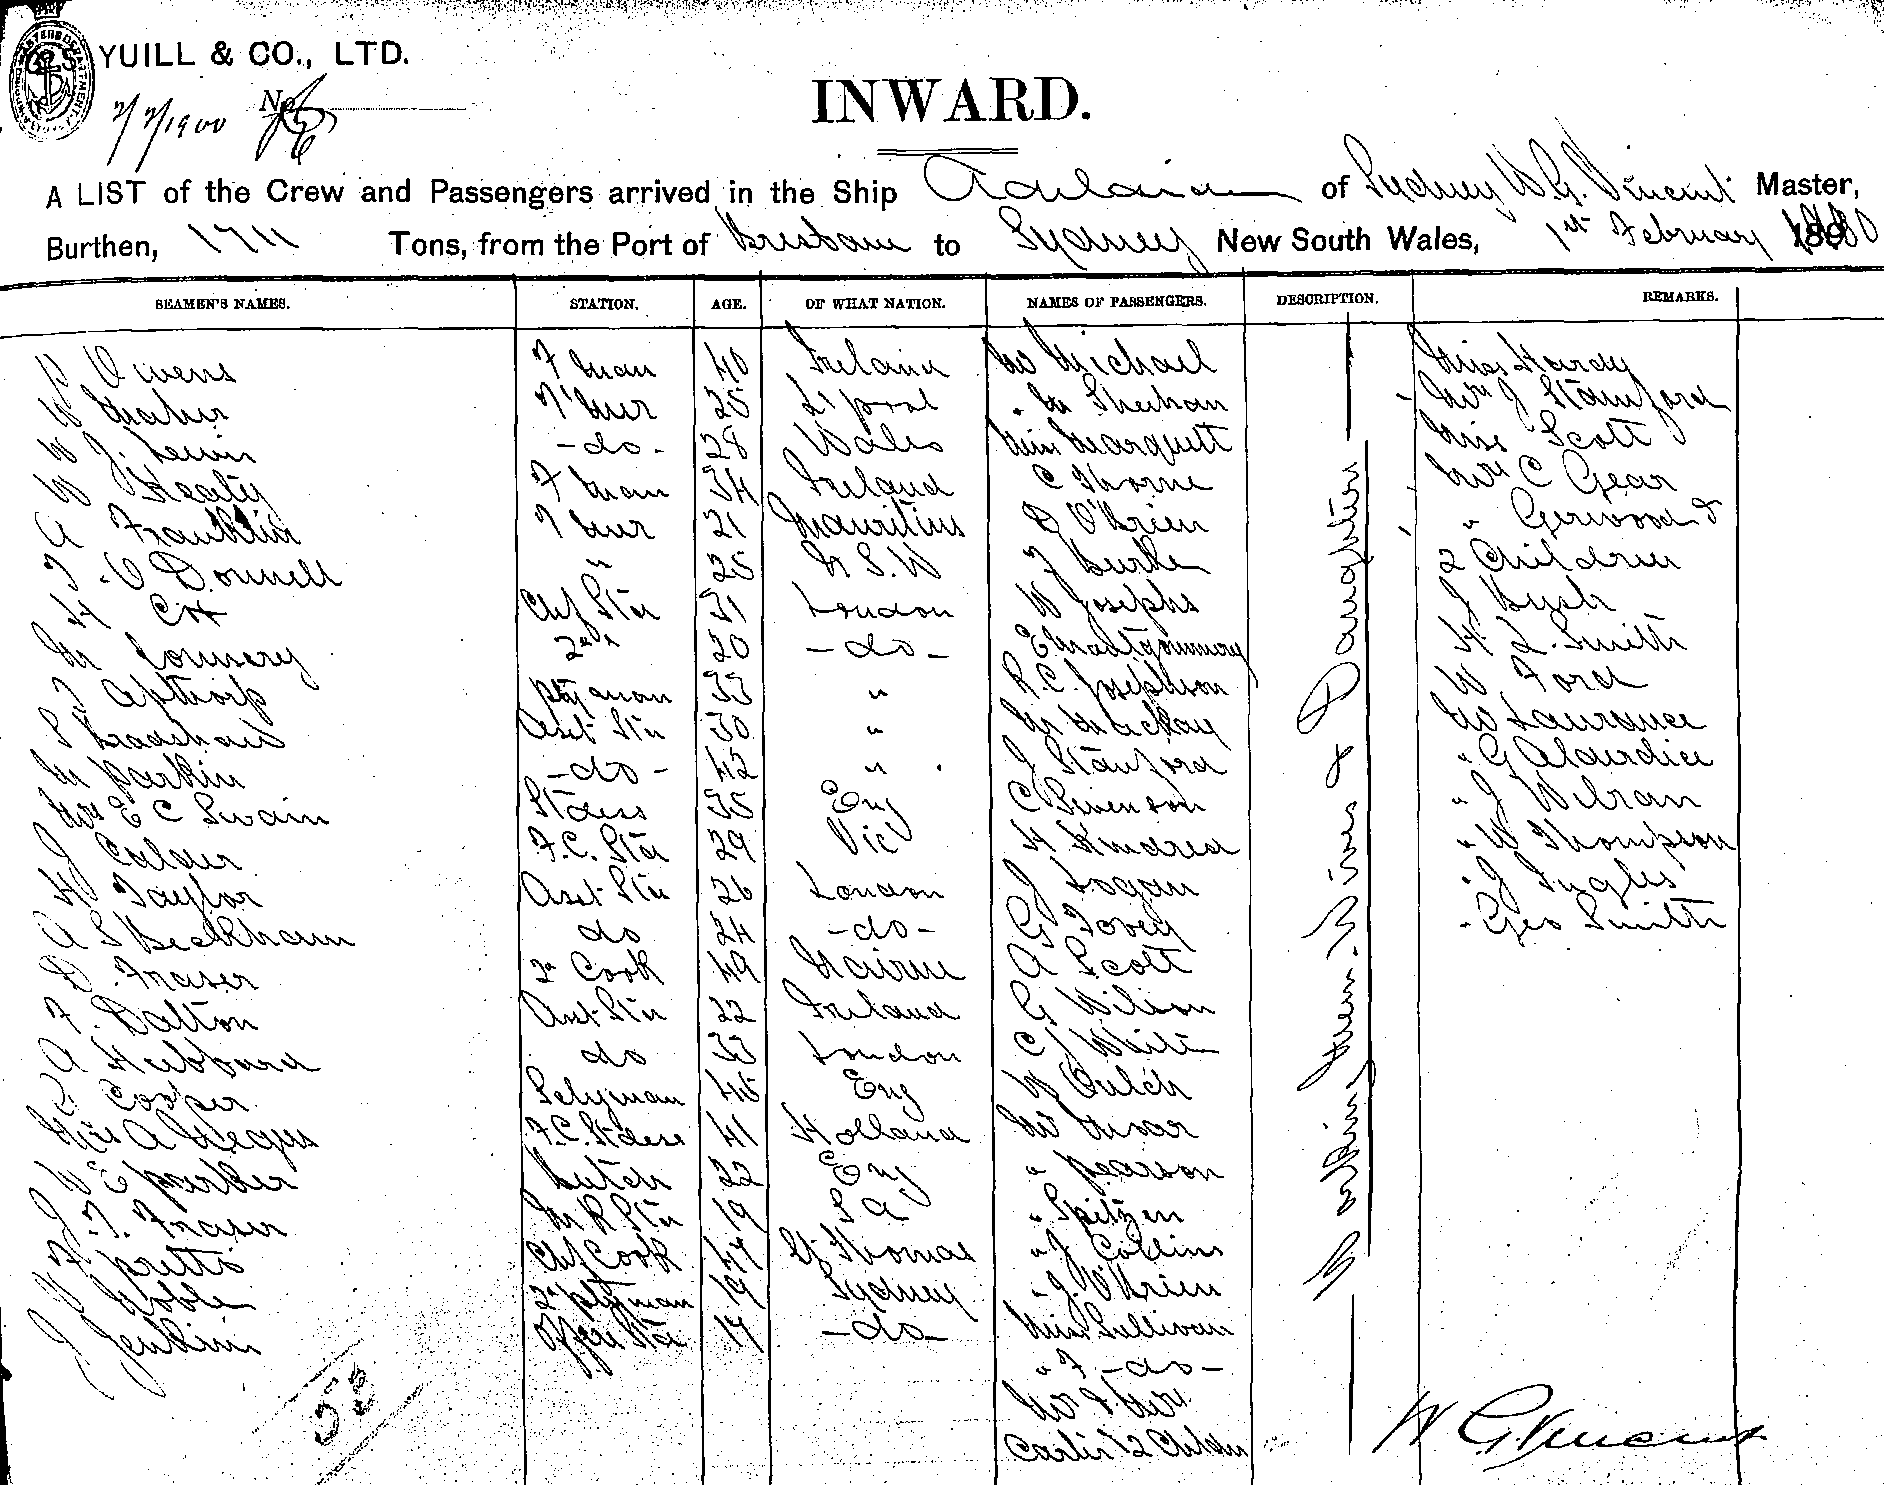 YUILL & CO., LTD.
2/2/1900 No.
INWARD.
A LIST of the Crew and Passengers arrived in the Ship of Sydney W. G. Vincent Master,
Burthen, 1711 Tons, from the Port of Brisbane to Sydney New South Wales, 1st February
SEAMEN'S NAMES. STATION. AGE. OF WHAT NATION. NAMES OF PASSENGERS. DESCRIPTION. REMARKS.
Owens F'man 40 Ireland Mr Michael Miss Hardy
W Maher T'mer 25 L'pool " M Sheehan Mrs J Stanford
W J. Lewis -do- 28 Wales Miss Marquett Miss Scott
W Heally F'man 34 Ireland C Thorne Mrs C Gear
A Franklin T'mer 21 Mauritius D O'Brien " Gerwood &
T. O'Donnell " 25 N.S.W F Burke 2 Children
H Cox Chf Std 31 London W Josephs J Bush
M Connery 2nd " 20 -do- E Montgommery H. L. Smith
T Apthorp Ptyman 33 " R. C. Josephson W Ford
S Bradshaw Asst Std 30 " M Mackay Mr Laurance
M Parkin -do- 42 " J Stanford " G Alardice
Mrs E C Swain Stdess 35 Eng C Svenson " J Wilran
J Calder F.C. Std 29 Vic H Kindred " W Thompson
H Taylor Asst Std 26 London J Logan " J Inglis
A S Beckham do 24 -do- G Tovey " Geo Smith
D. Fraser 2d Cook 49 Nairne A Scott
F. Dalton Asst Std 22 Ireland G Wilson
A Hubbard do 33 London C J White
Cooper Selyman 45 Eng W Gulch
Mrs A Negus F.C. Stdess 41 Holland Mr Invar
W E Parker Butch 22 Eng " Pearson
J. T. Fraser M R Std 19 S A " Spitzen
F Pretto Chf Cook 47 St Thomas " J Collins
Noble 2d Ptyman 19 Sydney " J. O'Brien
J Jenkins Offcrs Std 17 -do- Miss Sullivan
" F -do-
Mr & Mrs
Carter & 2 Children
& Daughters
53
W G Vincent